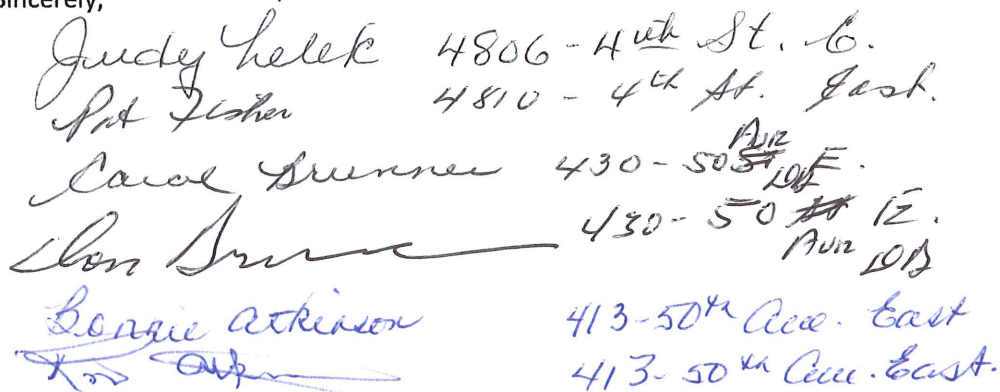 Sincerely,
Judy Lelek 4806 - 4th St. E.
Pat Fisher 4810 - 4th St. East.
Carol Brunner 430 - 50 Ave E.
DB
Don 430 - 50 E.
Ave DB
Bonnie Atkinson 413 - 50th Ave. East
413 - 50th Ave. East.